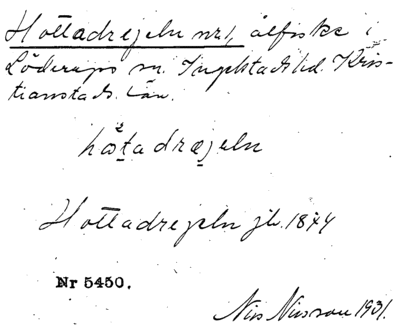 Hottadrejeln nr 1, ålfiske i
Löderups sn. Ingelstads hd. Kris-
tianstads län.
hωtadræjeln
Hottadrejeln jb. 1844
Nr 5450.
Nils Nilsson 1931.